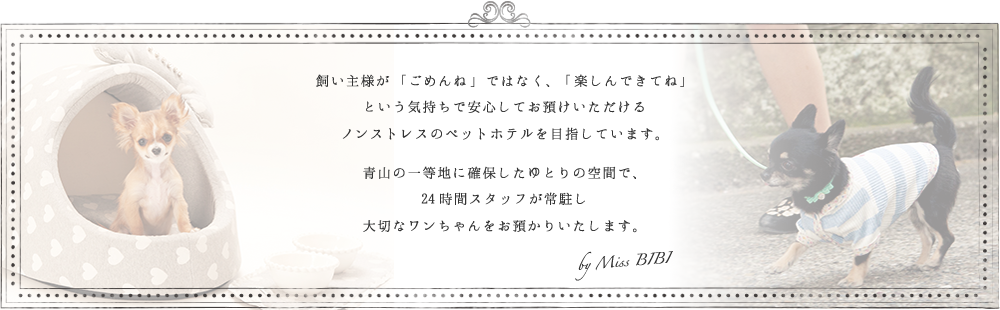 飼い主様が「ごめんね」ではなく、「楽しんできてね」
という気持ちで安心してお預けいただける
ノンストレスのペットホテルを目指しています。
青山の一等地に確保したゆとりの空間で、
24時間スタッフが常駐し
大切なワンちゃんをお預かりいたします。
by Miss BIBI